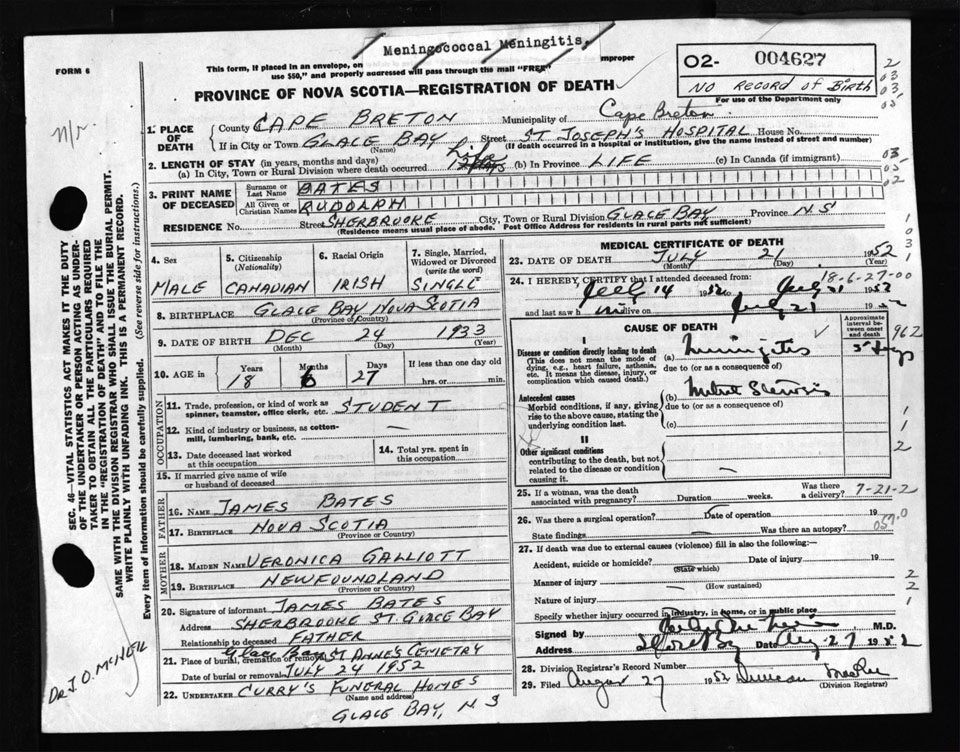 Meningococcal Meningitis.
FORM 6
This form, if placed in an envelope, on improper
use $50," and properly addressed will pass through the mail "FREE"
PROVINCE OF NOVA SCOTIA—REGISTRATION OF DEATH
02- 004627
NO RECORD OF BIRTH
For use of the Department only
n/r.
1. PLACE OF DEATH
County CAPE BRETON Municipality of Cape Breton
If in City or Town GLACE BAY Street ST JOSEPH'S HOSPITAL House No.
(Name) (If death occurred in a hospital or institution, give the name instead of street and number)
2. LENGTH OF STAY (in years, months and days)
(a) In City, Town or Rural Division where death occurred Life (b) In Province LIFE (c) In Canada (if immigrant)
3. PRINT NAME OF DECEASED
Surname or Last Name BATES
All Given or Christian Names RUDOLPH
RESIDENCE No. Street SHERBROOKE City, Town or Rural Division GLACE BAY Province N S
(Residence means usual place of abode. Post Office Address for residents in rural parts not sufficient)
4. Sex
MALE
5. Citizenship (Nationality)
CANADIAN
6. Racial Origin
IRISH
7. Single, Married, Widowed or Divorced (write the word)
SINGLE
8. BIRTHPLACE GLACE BAY NOVA SCOTIA
(Province or Country)
9. DATE OF BIRTH DEC 24 1933
(Month) (Day) (Year)
10. AGE in Years Months Days If less than one day
18 6 27 hrs. or min.
OCCUPATION
11. Trade, profession, or kind of work as spinner, teamster, office clerk, etc. STUDENT
12. Kind of industry or business, as cotton-mill, lumbering, bank, etc. —
13. Date deceased last worked at this occupation
14. Total yrs. spent in this occupation
15. If married give name of wife or husband of deceased
FATHER
16. NAME JAMES BATES
17. BIRTHPLACE NOVA SCOTIA
(Province or Country)
MOTHER
18. MAIDEN NAME VERONICA GALLIOTT
19. BIRTHPLACE NEWFOUNDLAND
(Province or Country)
20. Signature of informant JAMES BATES
Address SHERBROOKE ST. GLACE BAY
Relationship to deceased FATHER
21. Place of burial, cremation or removal Glace Bay ST ANNE'S CEMETRY
Date of burial or removal JULY 24 1952
22. UNDERTAKER CURRY'S FUNERAL HOMES
(Name and address)
GLACE BAY, N S
MEDICAL CERTIFICATE OF DEATH
23. DATE OF DEATH JULY 21 1952
(Month) (Day) (Year)
18-6-27-00
24. I HEREBY CERTIFY that I attended deceased from
July 14 1952 to July 21 1952
and last saw h im alive on July 21 1952
CAUSE OF DEATH
Approximate interval between onset and death
I
Disease or condition directly leading to death
(This does not mean the mode of dying, e.g., heart failure, asthenia, etc. It means the disease, injury, or complication which caused death.)
(a) Meningitis
due to (or as consequence of)
5 days
962
Antecedent causes
Morbid conditions, if any, giving rise to the above cause, stating the underlying condition last.
(b)
due to (or as a consequence of)
(c)
II
Other significant conditions
contributing to the death, but not related to the disease or condition causing it.
25. If a woman, was the death associated with pregnancy? Duration weeks. Was there a delivery?
7-21-2
26. Was there a surgical operation? Date of operation 19
State findings Was there an autopsy?
057.0
27. If death was due to external causes (violence) fill in also the following:
Accident, suicide or homicide? Date of injury 19
(State which)
Manner of injury
(How sustained)
Nature of injury
Specify whether injury occurred in industry, in home, or in public place
Signed by M.D.
Address Glace Bay Aug 27 1952
28. Division Registrar's Record Number
29. Filed August 27 1952 Duncan
(Division Registrar)
SEC. 46—VITAL STATISTICS ACT MAKES IT THE DUTY
OF THE UNDERTAKER OR PERSON ACTING AS UNDER-
TAKER TO OBTAIN ALL THE PARTICULARS REQUIRED
IN THE "REGISTRATION OF DEATH" AND TO FILE THE
SAME WITH THE DIVISION REGISTRAR WHO SHALL ISSUE THE BURIAL PERMIT.
WRITE PLAINLY WITH UNFADING INK. THIS IS A PERMANENT RECORD.
Every item of information should be carefully supplied. (See reverse side for instructions.)
DR J. O. MCNEIL